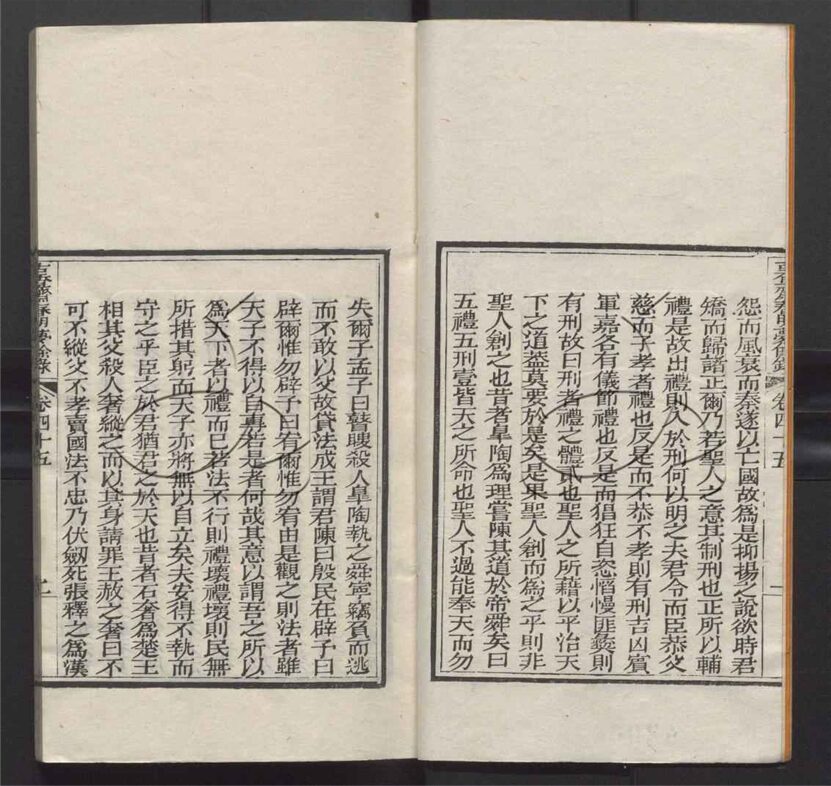 怨而風衰而秦遂以亡國故爲是抑揚之說欲時君
矯而歸諸正爾乃若聖人之意其制刑也正所以輔
禮是故出禮則入於刑何以明之夫君令而臣恭父
慈而子孝者禮也反是而不恭不孝則有刑吉凶賓
軍嘉各有儀節禮也反是而猖狂自恣慆慢匪彝則
有刑故曰刑者禮之體貳也聖人之所藉以平治天
下之道蓋莫要於是矣是果聖人創而爲之乎則非
聖人創之也昔者皐陶爲理嘗陳其道於帝舜矣曰
五禮五刑壹皆天之所命也聖人不過能奉天而勿
失爾孟子曰瞽瞍殺人皐陶執之舜寧竊負而逃
而不敢以父故貸法成王謂君陳曰殷民在辟予曰
辟爾惟勿辟予曰宥爾惟勿宥由是觀之則法者雖
天子不得以自專若是者何哉其意以謂吾之所以
爲天下者以禮而已若法不行則禮壞禮壞則民無
所措其躬而天子亦將無以自立矣夫安得不執而
守之乎臣之於君猶君之於天也昔者石奢爲楚王
相其父殺人奢縱之而以其身請罪王赦之奢曰不
可不縱父不孝賣國法不忠乃伏劒死張釋之爲漢
春明夢餘錄
卷四十五